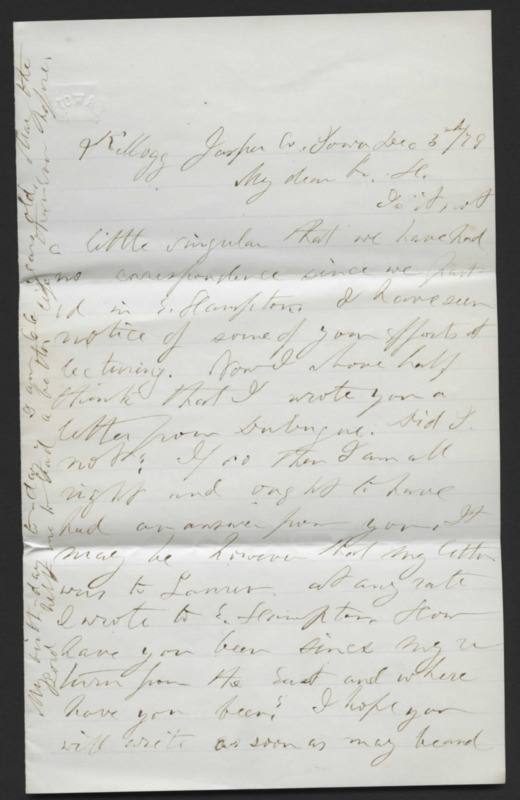 IOWA
Kellogg Jasper Co. Iowa Dec 3rd/78
My dear Br. H.
Is it not
a little singular that we have had
no correspondence since we part-
ed in E. Hampton. I have seen
notice of some of your efforts at
lecturing. Now I above half
think that I wrote you a
letter from Dubuque. Did I
not? If so then I am all
right and ought to have
had an answer from you. It
may be however that my letter
was to at any rate
I wrote to E. Hampton. How
have you been since my re
turn from the East and where
have you been? I hope you
will write as soon as may be and
My birth-day to-day years old. May the
good help me to a better than ever before.